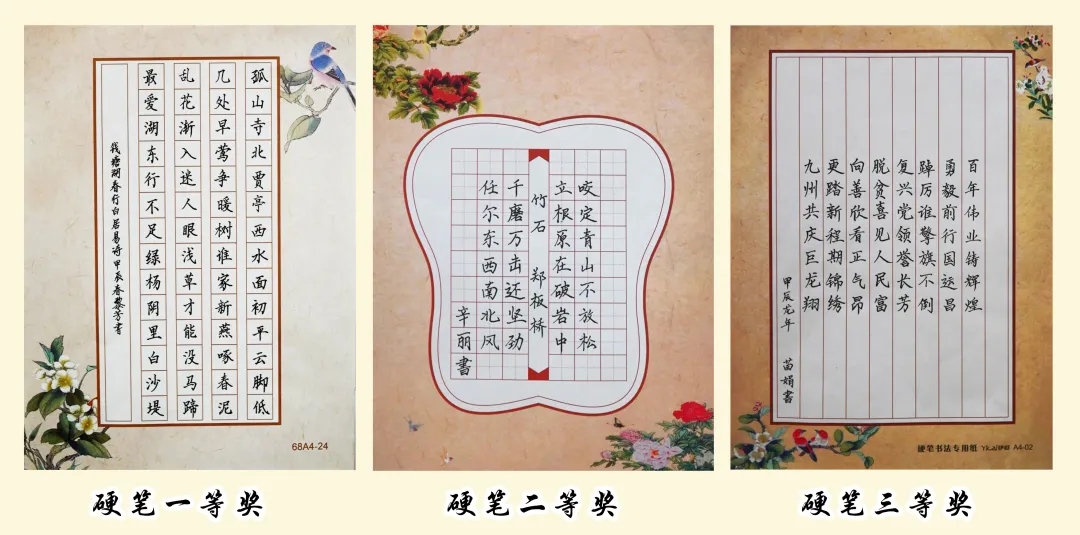 孤山寺北贾亭西水面初平云脚低
几处早莺争暖树谁家新燕啄春泥
乱花渐入迷人眼浅草才能没马蹄
最爱湖东行不足绿杨阴里白沙堤
钱塘湖春行白居易诗甲辰春黎芳書
68A4-24
硬笔一等奖
咬定青山不放松
立根原在破岩中
竹石 郑板桥
千磨万击还坚劲
任尔东西南北风
辛丽書
硬笔二等奖
百年伟业铸辉煌
勇毅前行国运昌
踔厉谁擎旗不倒
复兴党领誉长芳
脱贫喜见人民富
向善欣看正气昂
更踏新程期锦绣
九州共庆巨龙翔
甲辰龙年 苗娟書
硬笔书法专用纸 A4-02
硬笔三等奖